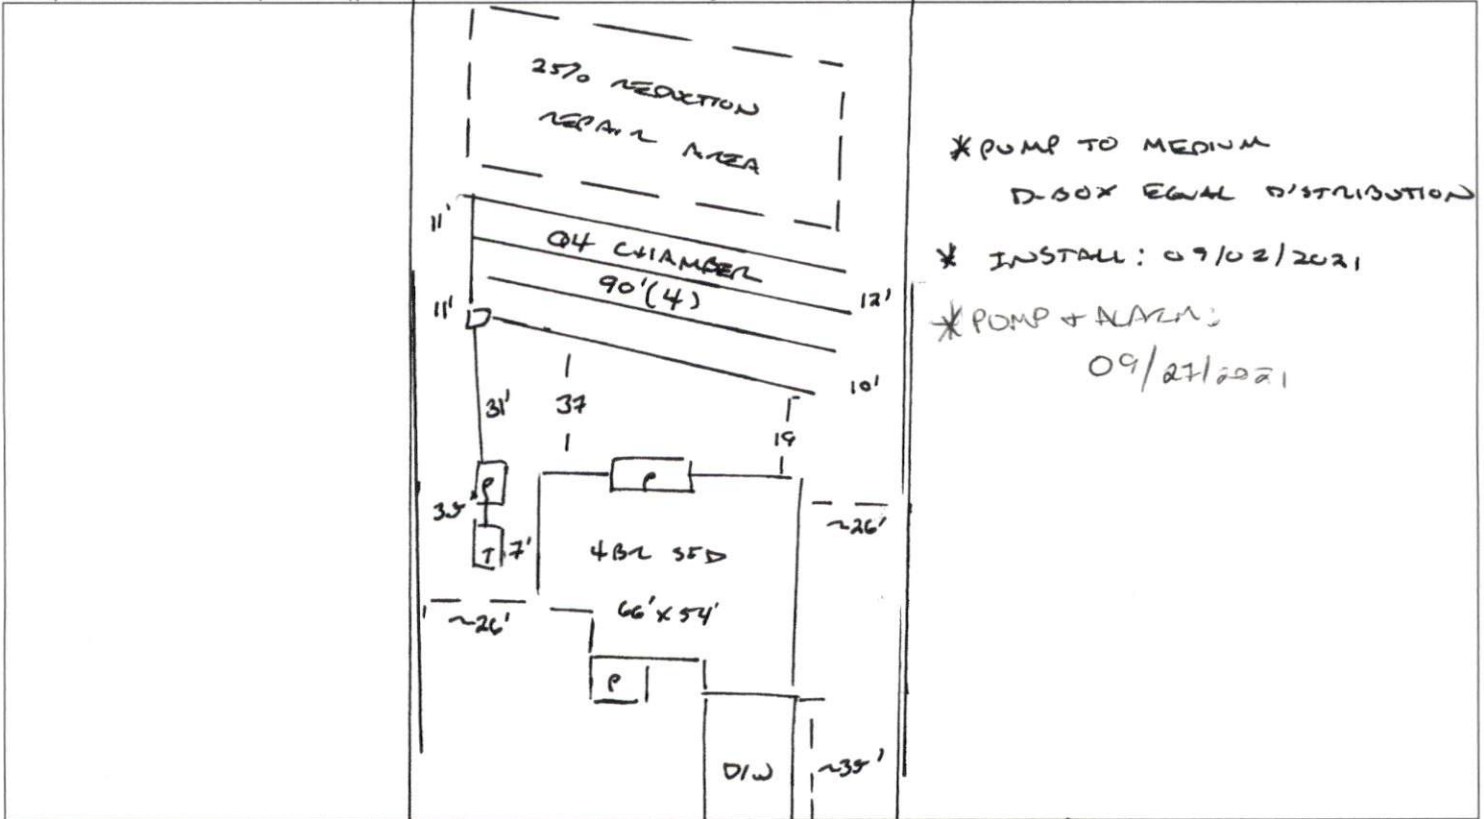 25% REDUCTION
REPAIR AREA
11'
Q4 CHAMBER
90'(4)
12'
11'
10'
31'
37
19
P
P
35'
T
7'
~26'
4BR SFD
~26'
66'X54'
P
D/W
~35'
* PUMP TO MEDIUM
D-BOX EQUAL DISTRIBUTION
* INSTALL: 09/02/2021
* PUMP + ALARM:
09/27/2021